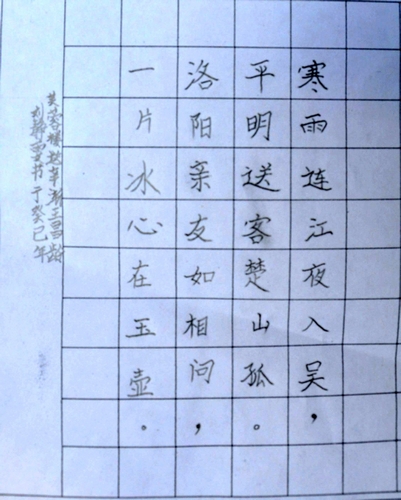 寒雨连江夜入吴，
平明送客楚山孤。
洛阳亲友如相问，
一片冰心在玉壶。
芙蓉楼送辛渐王昌龄
书于癸巳年